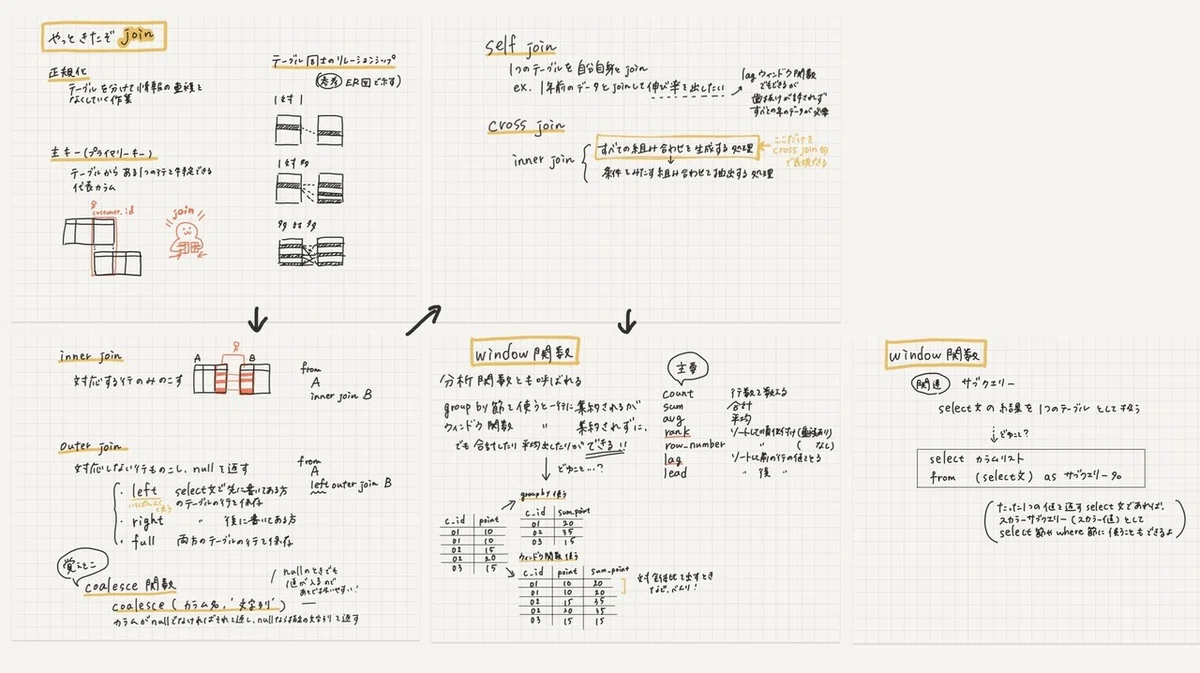 やっときたぞ join
正規化
テーブルを分けて情報の重複を
なくしていく作業
主キー(プライマリーキー)
テーブルから ある1つの行を特定できる
代表カラム
customer_id
join
テーブル同士のリレーションシップ
(参考) ER図で示す)
1対1
1対多
多対多
inner join
対応する行のみのこす
A B
from
A
inner join B
outer join
対応しない行ものこし、nullを返す
from
A
left outer join B
・left select文で先に書いてある方
のテーブルの行を保存
いちばんよく使う
・right 〃 後に書いてある方
・full 両方のテーブルの行を保存
覚えとこ
coalesce 関数
coalesce ( カラム名, '文字列' )
カラムがnullでなければそれを返し、nullなら指定の文字列を返す
nullのときでも
値が入るので
あとで扱いやすい!
self join
1つのテーブルを自分自身とjoin
ex. 1年前のデータとjoinして伸び率を出したい
lagウィンドウ関数
でもできるが
歯抜けが許されず
すべての年のデータが必要
cross join
inner join
すべての組み合わせを生成する処理
条件をみたす組み合わせを抽出する処理
ここだけを
cross join句
で表現できる
window 関数
分析関数とも呼ばれる
group by 節を使うと一行に集約されるが
ウィンドウ関数 〃 集約されずに、
でも合計したり平均出したりができる!!
どゆこと…?
group by 使う
c_id point
01 10
01 10
02 15
02 20
03 15
c_id sum_point
01 20
02 35
03 15
ウィンドウ関数 使う
c_id point sum_point
01 10 20
01 10 20
02 15 35
02 20 35
03 15 15
対全体比を出すとき
など、べんり!
主要
count 行数を数える
sum 合計
avg 平均
rank ソートして順位付け(重複あり)
row_number 〃 ( なし)
lag ソートして前の行の値をとる
lead 〃 後 〃
window 関数
関連 サブクエリー
select文の結果を1つのテーブルとして扱う
どゆこと?
select カラムリスト
from (select文) as サブクエリー名
(たった1つの値を返すselect文であれば、
スカラーサブクエリー(スカラー値)として
select節やwhere節に使うこともできるよ)